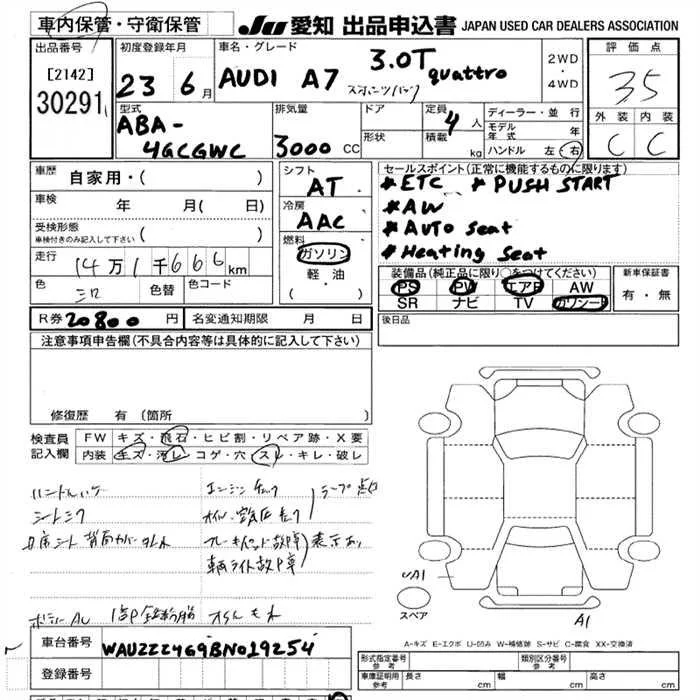 車内保管・守衛保管
JU 愛知 出品申込書 JAPAN USED CAR DEALERS ASSOCIATION
出品番号
[2142]
30291
初度登録年月
23 6月
車名・グレード
AUDI A7 3.0T quattro
スポーツバック
2WD
・
4WD
評価点
3.5
外装 内装
C C
型式
ABA-
4GCGWC
排気量
3000 CC
ドア
形状
定員 4 人
積載 kg
ディーラー・並行
モデル年式 年
ハンドル 左・右
車歴 自家用・( )
車検 年 月( 日)
受検形態
車検付きのみ記入して下さい ( )
走行 14万1千666km
色 シロ 色替 色コード
シフト
AT
冷房
AAC
燃料
ガソリン
軽・油
( ・ )
セールスポイント(正常に機能するものに限ります)
*ETC *PUSH START
*AW
*AUTO seat
*Heating Seat
装備品(純正品に限り○をつけてください)
PS PW エアB AW
SR ナビ TV カワシート
新車保証書
有・無
R券 20800 円 名変通知期限 月 日
後日品
注意事項申告欄(不具合内容等は具体的に記入して下さい)
修復歴 有(箇所 )
検査員
記入欄
FW キズ・飛石・ヒビ割・リペア跡・X要
内装 キズ・汚レ・コゲ・穴・スレ・キレ・破レ
ハンドルハゲ
エンジンチェック
ランプ点灯
表示あり
ブレーキパッド故障
UA1
A1
スペア
A-キズ E-エクボ U-凹み W-補修跡 S-サビ C-腐食 XX-交換済
車台番号 WAUZZZ4G9BN019254
登録番号
形式指定番号
参考
類別区分番号
参考
車庫証明用
参考
長さ cm 幅 cm 高さ cm